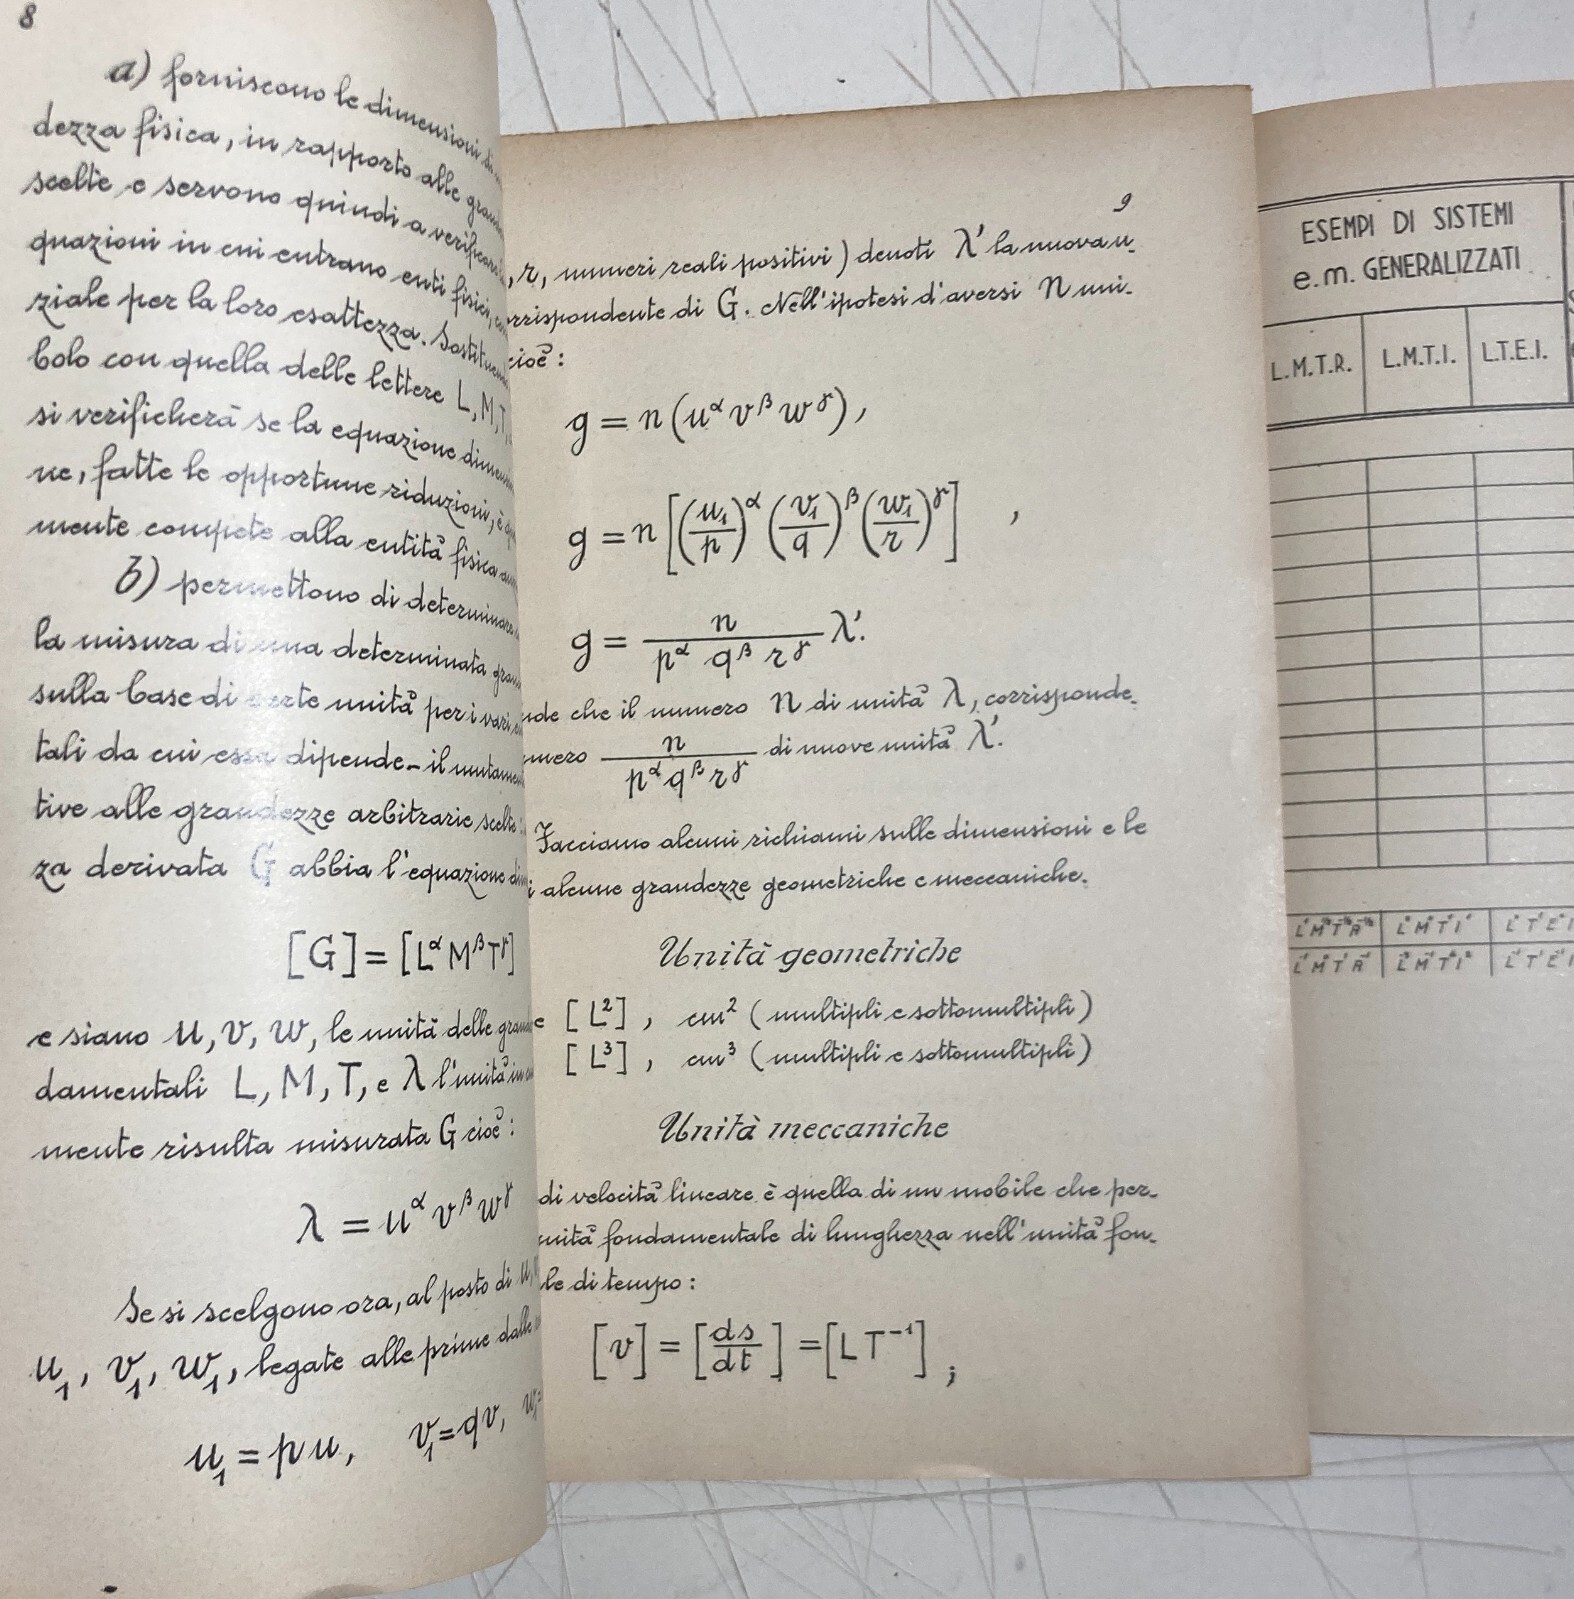 8
a) forniscono le dimensioni di
dezza fisica, in rapporto alle
scelte e servono quindi a
quazioni in cui entrano enti fisici,
ziale per la loro esattezza.
bolo con quella delle lettere L, M, T,
si verificherà se la equazione
ne, fatte le opportune riduzioni, è
mente compete alla entità fisica
b) permettono di determinare
la misura di una determinata
sulla base di certe unità per i vari
tali da cui essa dipende - il
tive alle grandezze arbitrarie scelte
za derivata G abbia l'equazione
[G] = [L^α M^β T^γ]
e siano u, v, w, le unità delle
damentali L, M, T, e λ l'unità in
mente risulta misurata G cioè:
λ = u^α v^β w^γ
Se si scelgono ora, al posto di u,
u₁, v₁, w₁, legate alle prime dalle
u₁ = p u, v₁ = q v,
9
, r, numeri reali positivi) denoti λ' la nuova u-
rrispondente di G. Nell'ipotesi d'aversi n uni-
cioè:
g = n (u^α v^β w^γ),
g = n [(u₁/p)^α (v₁/q)^β (w₁/r)^γ] ,
g = n/(p^α q^β r^γ) λ'.
nde che il numero n di unità λ, corrisponde
mero n/(p^α q^β r^γ) di nuove unità λ'.
Facciamo alcuni richiami sulle dimensioni e le
i alcune grandezze geometriche e meccaniche.
Unità geometriche
e [L²], cm² (multipli e sottomultipli)
[L³], cm³ (multipli e sottomultipli)
Unità meccaniche
di velocità lineare è quella di un mobile che per-
nità fondamentale di lunghezza nell'unità fon-
le di tempo:
[v] = [ds/dt] = [L T⁻¹] ;
ESEMPI DI SISTEMI
e.m. GENERALIZZATI
L.M.T.R. L.M.T.I. L.T.E.I.